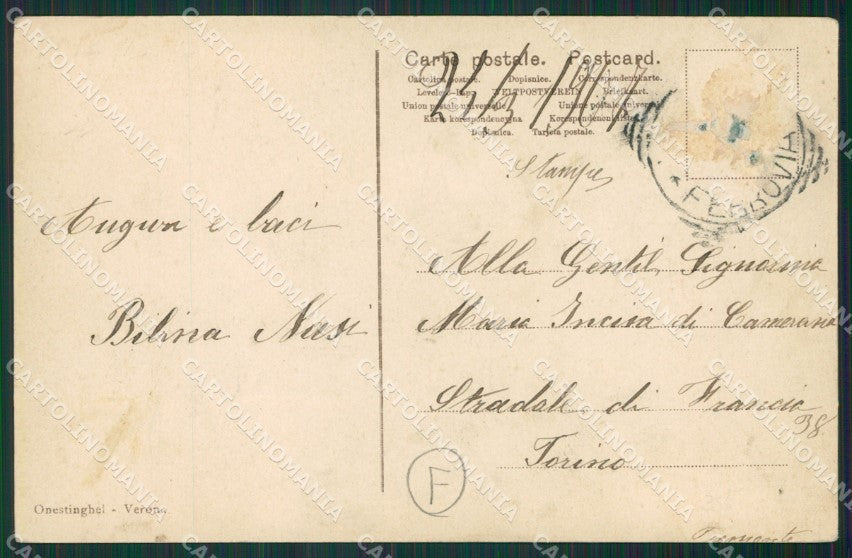 Carte postale. Postcard.
Cartolina postale. Dopisnice. Correspondenzkarte.
Levelező-lap. WELTPOSTVEREIN Briefkaart.
Union postale universelle. Unione postale universale
Karta korespondencyjna Korespondenční lístek
Dopisnica. Tarjeta postale.
Stampe
FERROVIA
Auguri e baci
Bilina Nasi
Alla Gentil. Signorina
Maria Incisa di Camerana
Stradale di Francia
38
Torino
Piemonte
F
Onestinghel - Verona
CARTOLINOMANIA